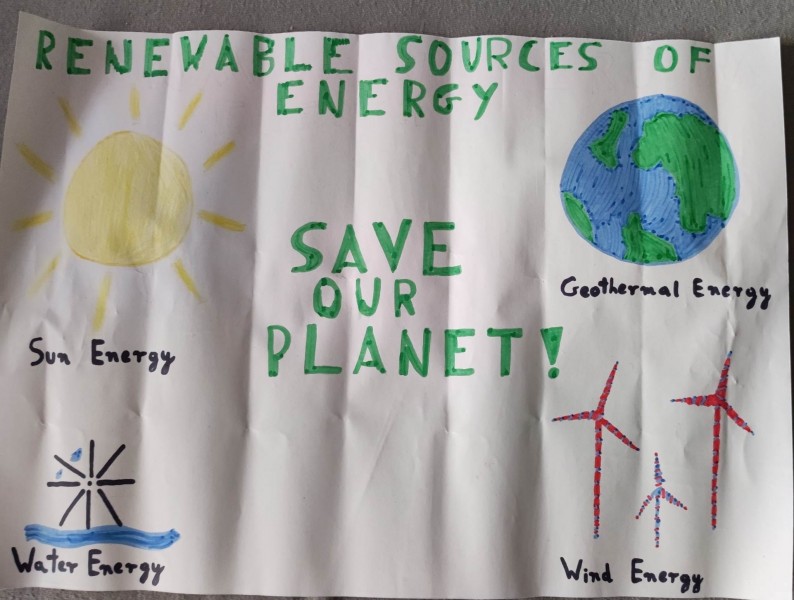 RENEWABLE SOURCES OF
ENERGY
SAVE
OUR
PLANET!
Geothermal Energy
Sun Energy
Water Energy
Wind Energy